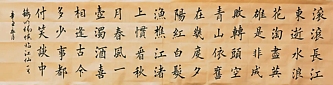 滾滾長江
東逝水浪
花淘盡英
雄是非成
敗轉頭空
青山依舊
在幾度夕
陽紅白髮
漁樵江渚
上慣看秋
月春風一
壺濁酒喜
相逢古今
多少事都
付笑談中